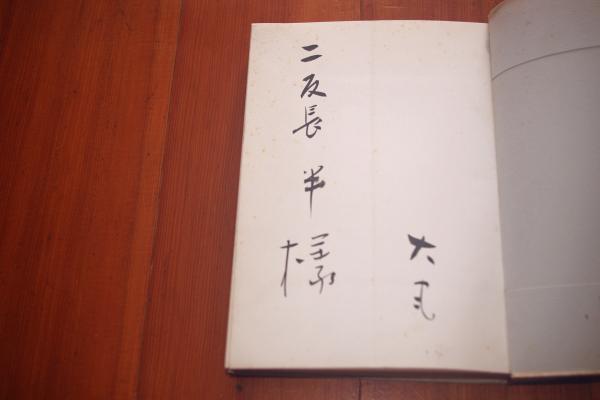 大
二反長半様